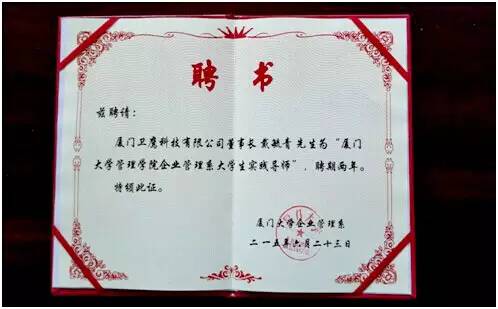 聘书
兹聘请：
厦门卫鹰科技有限公司董事长戴毓青先生为“厦门
大学管理学院企业管理系大学生实践导师”，聘期两年。
特颁此证。
厦门大学企业管理系
二一五年六月二十三日